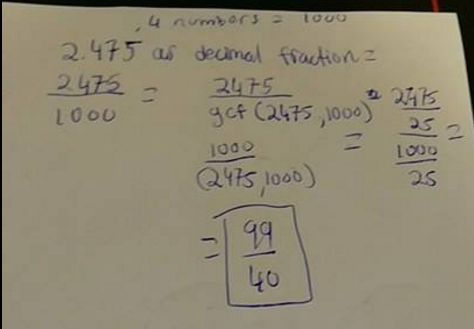 .4 numbers = 1000
2.475 as decimal fraction =
2475 / 1000 = 2475 / gcf (2475,1000) / 1000 / (2475,1000) = 2475 / 25 / 1000 / 25 =
= 99 / 40